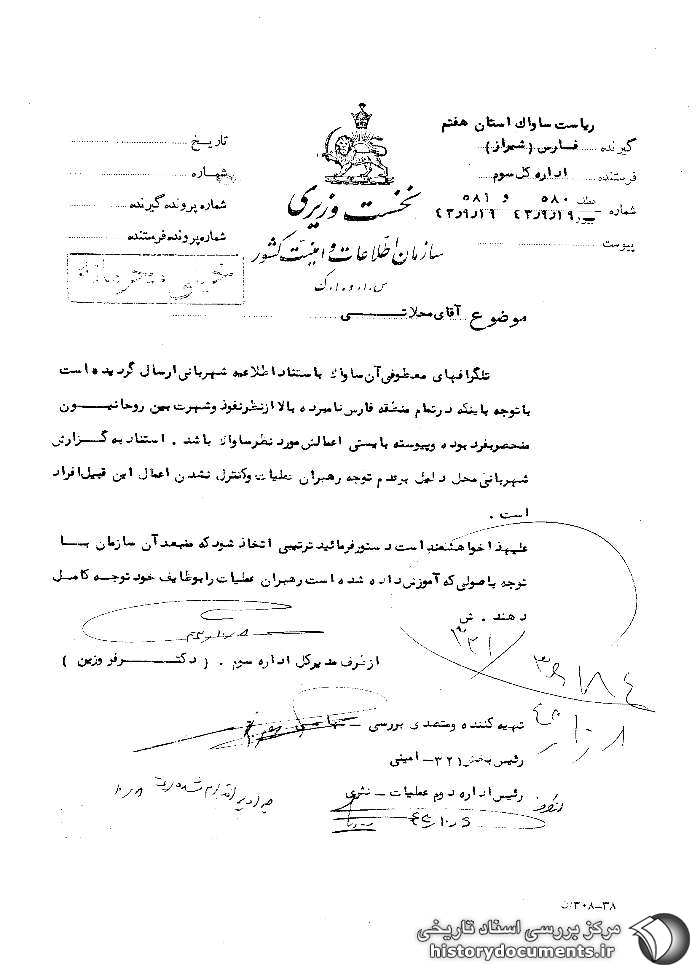 ریاست ساواک استان هفتم
گیرنده فارس (شیراز)
فرستنده اداره کل سوم
شماره ۵۸۰ و ۵۸۱
۴۳٫۹٫۱۹ ۴۳٫۹٫۱۹
پیوست
تاریخ
شماره
شماره پرونده گیرنده
شماره پرونده فرستنده
نخست وزیری
سازمان اطلاعات و امنیت کشور
س.ا.و.ا.ک
موضوع آقای محلاتی
تلگرافهای معطوفی آن ساواک باستناد اطلاعیه شهربانی ارسال گردیده است
با توجه باینکه در تمام منطقه فارس نامبرده بالا از نظر نفوذ و شهرت بین روحانیون
منحصر بفرد بوده و پیوسته بایستی اعمالش مورد نظر ساواک باشد . استناد به گزارش
شهربانی محل دلیل بر عدم توجه رهبران عملیات و کنترل نشدن اعمال این قبیل افراد
است .
علیهذا خواهشمند است دستور فرمائید ترتیبی اتخاذ شود که منبعد آن سازمان با
توجه باصولی که آموزش داده شده است رهبران عملیات را بوظایف خود توجه کامل
دهند . ش
از طرف مدیر کل اداره سوم . ( دکتر فروزین )
تهیه کننده و متصدی بررسی -
رئیس بخش ۳۲۱ - امینی
رئیس اداره دوم عملیات - نثری
۳۸-۳۰۸
مرکز بررسی اسناد تاریخی
historydocuments.ir